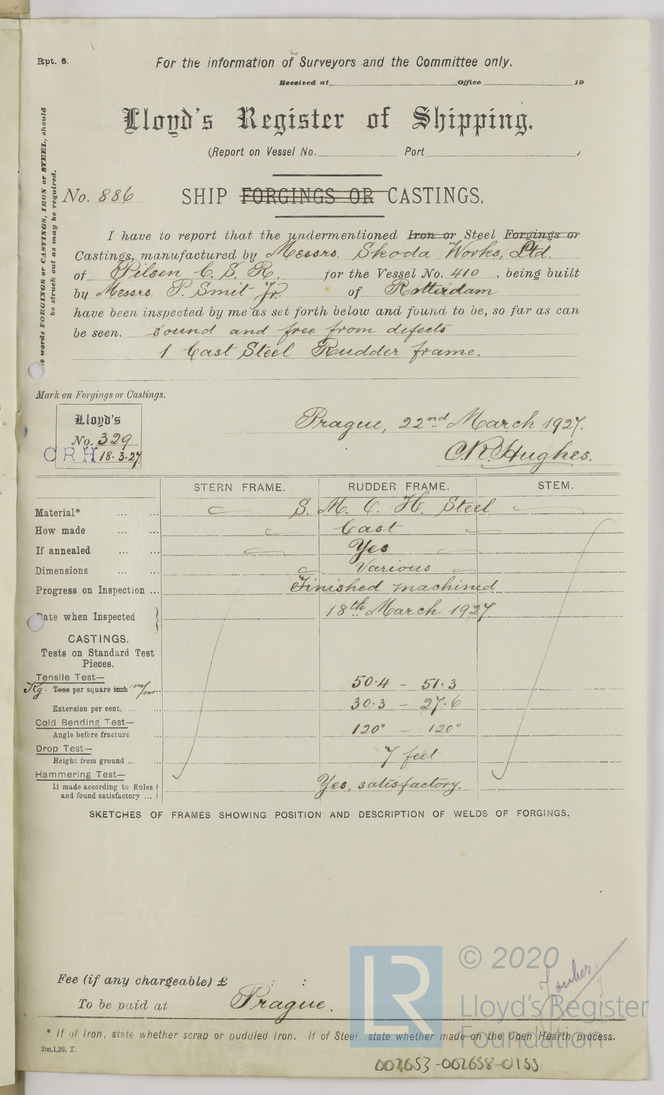 Rpt. 6.
For the information of Surveyors and the Committee only.
Received at Office 19
Lloyd's Register of Shipping.
(Report on Vessel No. Port
words FORGINGS or CASTINGS, IRON or STEEL, should
be struck out as may be required.
No. 886 SHIP FORGINGS OR CASTINGS.
I have to report that the undermentioned Iron or Steel Forgings or
Castings, manufactured by Messrs. Skoda Works, Ltd.
of Pilsen C.S.R. for the Vessel No. 410, being built
by Messrs. P. Smit Jr. of Rotterdam
have been inspected by me as set forth below and found to be, so far as can
be seen. sound and free from defects
1 Cast Steel Rudder frame.
Mark on Forgings or Castings.
Lloyd's
No. 329
C R H 18.3.27
Prague, 22nd March 1927.
C.R. Hughes.
STERN FRAME. RUDDER FRAME. STEM.
Material* ... ... S. M. O. H. Steel
How made ... ... Cast
If annealed ... ... Yes
Dimensions ... ... Various
Progress on Inspection ... Finished machined
Date when Inspected 18th March 1927
CASTINGS.
Tests on Standard Test
Pieces.
Tensile Test—
Kg. Tons per square inch m/m 50.4 - 51.3
Extension per cent. ... 30.3 - 27.6
Cold Bending Test—
Angle before fracture 120° - 120°
Drop Test—
Height from ground ... ... 7 feet
Hammering Test—
If made according to Rules
and found satisfactory ... Yes, satisfactory.
SKETCHES OF FRAMES SHOWING POSITION AND DESCRIPTION OF WELDS OF FORGINGS.
Fee (if any chargeable) £ : :
To be paid at Prague.
* If of Iron, state whether scrap or puddled Iron. If of Steel, state whether made on the Open Hearth process.
2m,1,26. T.
LR
© 2020
Lloyd's Register
Foundation
002653-002658-0155